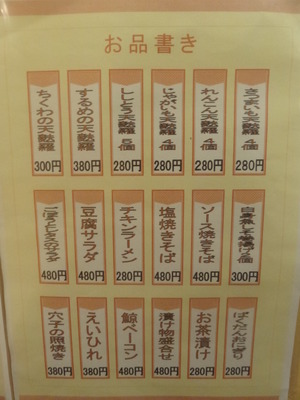 お品書き
さつまいも天麩羅 4個
280円
れんこん天麩羅 4個
280円
じゃがいも天麩羅 4個
280円
ししとう天麩羅 5個
280円
するめの天麩羅
380円
ちくわの天麩羅
300円
白身魚しそ巻揚げ 4個
300円
ソース焼きそば
480円
塩焼きそば
480円
チキンラーメン
280円
豆腐サラダ
480円
ごぼうとレタスのサラダ
480円
ばくだんおにぎり
280円
お茶漬け
280円
漬け物盛合せ
480円
鯨ベーコン
480円
えいひれ
380円
穴子の照焼き
380円